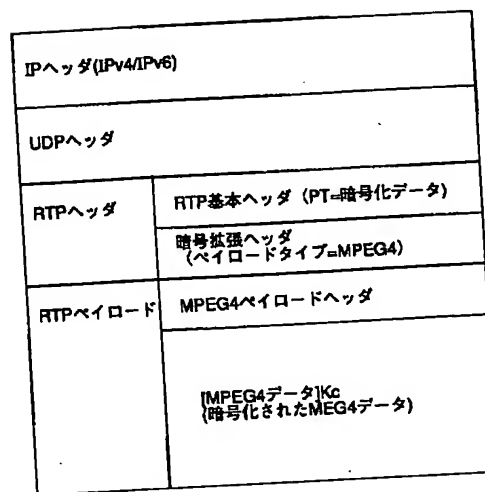 IPヘッダ(IPv4/IPv6)
UDPヘッダ
RTPヘッダ
RTP基本ヘッダ（PT=暗号化データ)
暗号拡張ヘッダ
（ペイロードタイプ=MPEG4）
RTPペイロード
MPEG4ペイロードヘッダ
[MPEG4データ]Kc
(暗号化されたMEG4データ)